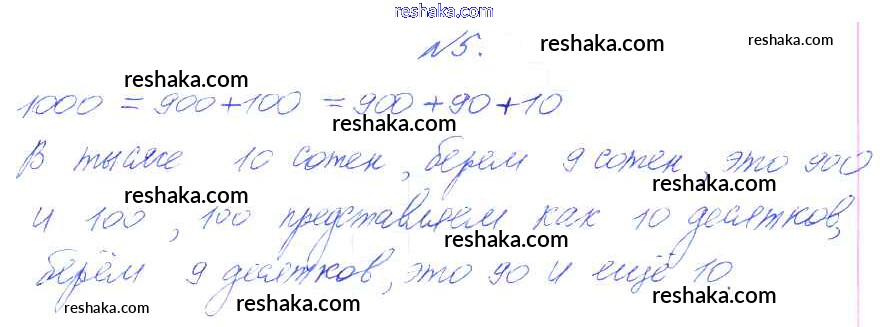 reshaka.com
№5.
reshaka.com
reshaka.com
reshaka.com
1000 = 900+100 = 900+90+10
reshaka.com
В тысяче 10 сотен, берем 9 сотен, это 900
reshaka.com
reshaka.com
и 100, 100 представляем как 10 десятков,
reshaka.com
берём 9 десятков, это 90 и ещё 10.
reshaka.com
reshaka.com
reshaka.com